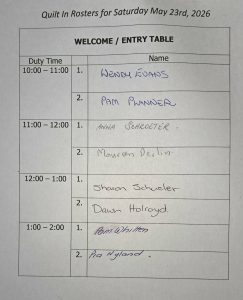 Quilt In Rosters for Saturday May 23rd, 2026
WELCOME / ENTRY TABLE
Duty Time Name
10:00 – 11:00 1. WENDY EVANS
2. PAM PLANNER
11:00 – 12:00 1. ANNA SCHROETER.
2. Maureen Devlin
12:00 – 1:00 1. Sharon Schueler
2. Dawn Holroyd
1:00 – 2:00 1. Pam Whitten
2. Pia Hyland.